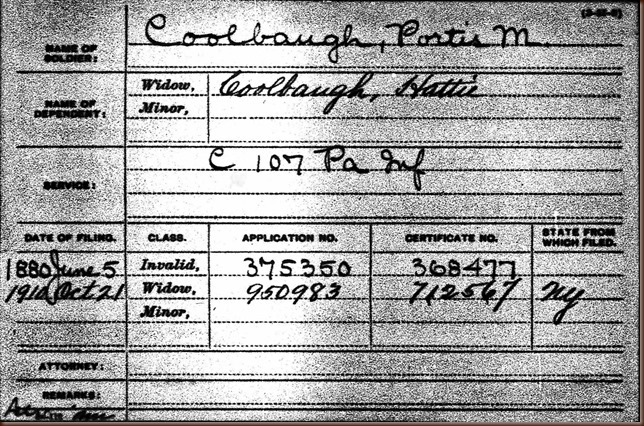 (3-85-8)
NAME OF SOLDIER: Coolbaugh, Portis M.
NAME OF DEPENDENT: Widow, Coolbaugh, Hattie
Minor,
SERVICE: C 107 Pa Inf
DATE OF FILING. CLASS. APPLICATION NO. CERTIFICATE NO. STATE FROM WHICH FILED.
1880 June 5 Invalid, 375350 368477
1910 Oct 21 Widow, 950983 712567 NY
Minor,
ATTORNEY:
REMARKS: